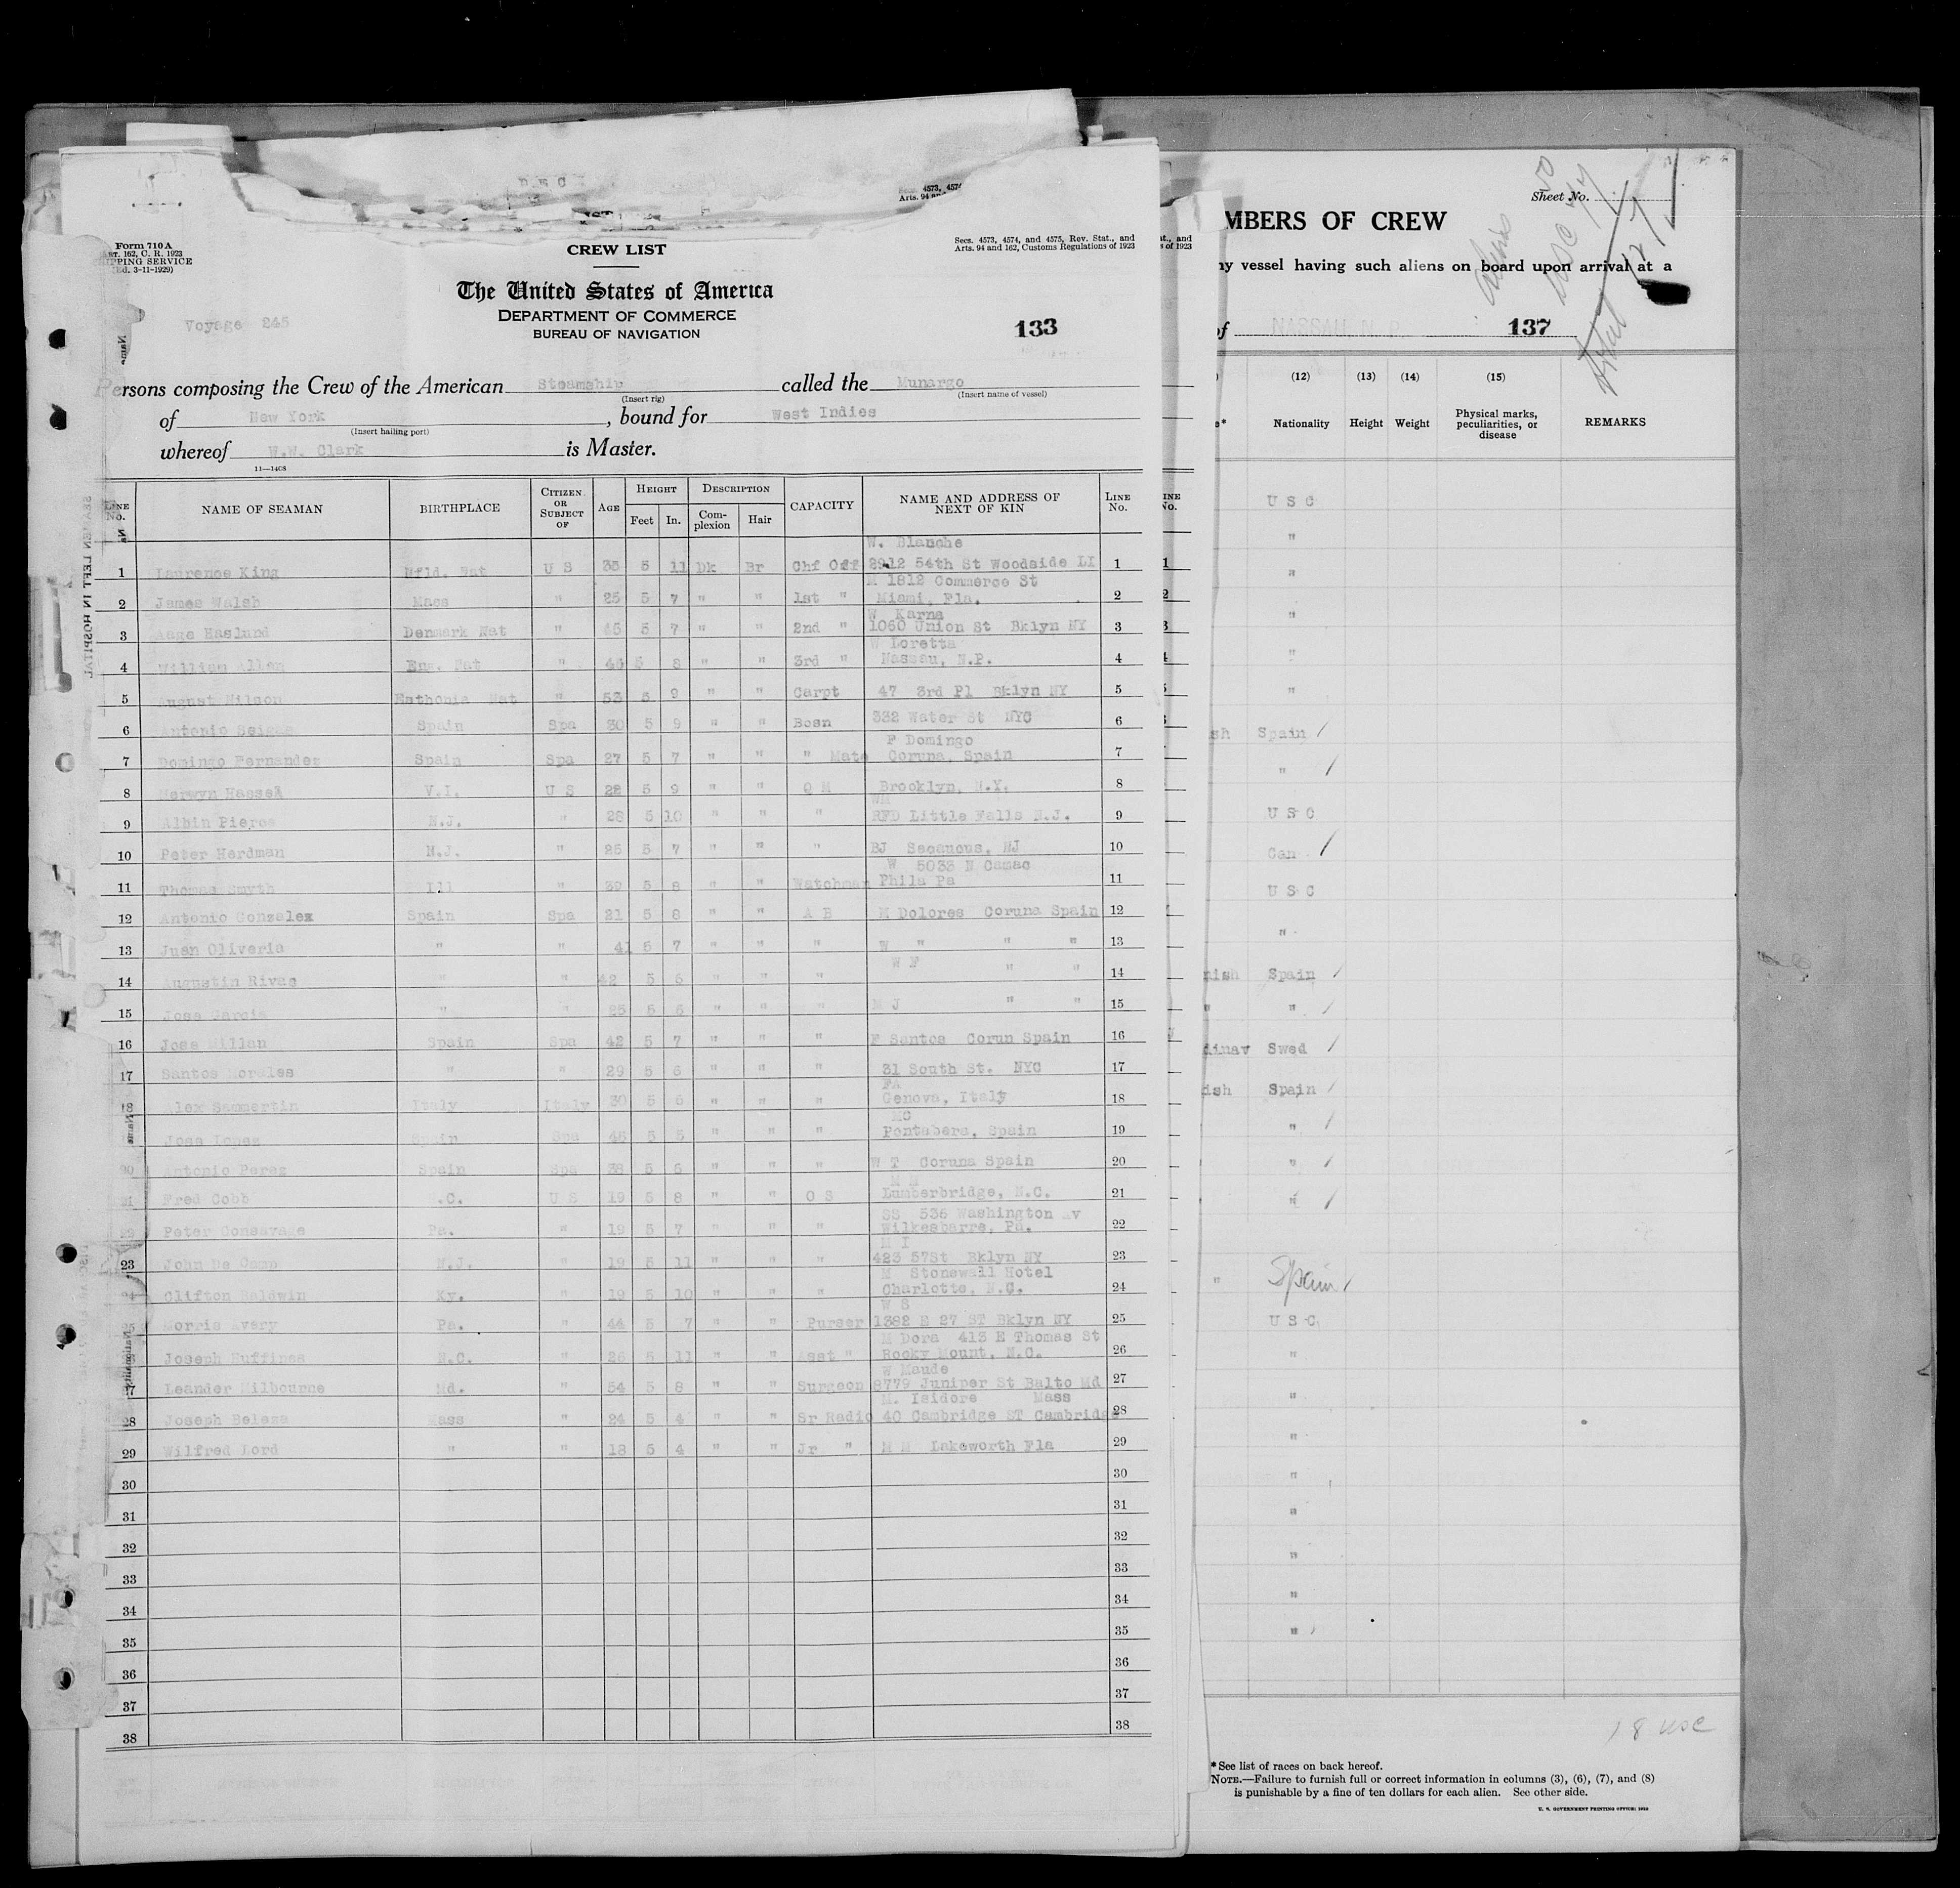 Form 710 A
ART. 162, C. R. 1923
SHIPPING SERVICE
(Ed. 3-11-1929)
CREW LIST
Secs. 4573, 4574, and 4575, Rev. Stat., and
Arts. 94 and 162, Customs Regulations of 1923
The United States of America
DEPARTMENT OF COMMERCE
BUREAU OF NAVIGATION
Voyage 245
133
Persons composing the Crew of the American Steamship called the Munargo
(Insert rig) (Insert name of vessel)
of New York, bound for West Indies
(Insert hailing port)
whereof W.W. Clark is Master.
11—1408
LINE No. NAME OF SEAMAN BIRTHPLACE CITIZEN OR SUBJECT OF AGE HEIGHT Feet In. DESCRIPTION Complexion Hair CAPACITY NAME AND ADDRESS OF NEXT OF KIN LINE No.
W. Blanche
1 Laurence King Nfld. Nat U S 35 5 11 Dk Br Chf Off 2912 54th St Woodside LI 1
M 1812 Commerce St
2 James Walsh Mass " 25 5 7 " " 1st " Miami, Fla. 2
W. Karna
3 Aage Haslund Denmark Nat " 45 5 7 " " 2nd " 1060 Union St Bklyn NY 3
W Loretta
4 William Allen Eng. Nat " 5 8 " " 3rd " Nassau, N.P. 4
5 August Nilson Esthonia Nat " 53 5 9 " " Carpt 47 3rd Pl Bklyn NY 5
6 Antonio Spain Spa 30 5 9 " " Bosn 332 Water St NYC 6
F Domingo
7 Domingo Fernandez Spain Spa 27 5 7 " " " Mate Coruna, Spain 7
8 Merwyn Hassel V.I. U S 28 5 9 " " Q M Brooklyn, N.Y. 8
9 Albin Pierce N.J. " 28 5 10 " " " RFD Little Falls N.J. 9
10 Peter Herdman N.J. " 25 5 7 " " " BJ Secaucus, NJ 10
W 5033 N Camac
11 Thomas Smyth Ill " 39 5 8 " " Watchman Phila Pa 11
12 Antonio Gonzalez Spain Spa 21 5 8 " " A B M Dolores Coruna Spain 12
13 Juan Oliveria " " 41 5 7 " " " W " " " 13
W F " "
14 Augustin Rivas " " 42 5 6 " " " 14
15 Jose Garcia " " 25 5 6 " " " M J " " 15
16 Jose Millan Spain Spa 42 5 7 " " " F Santos Corun Spain 16
17 Santos Morales " " 29 5 6 " " " 31 South St. NYC 17
FA
18 Alex Sammertin Italy Italy 30 5 6 " " " Genova, Italy 18
MC
Jose Lopez Spain Spa 45 5 5 " " " Pontabera, Spain 19
20 Antonio Perez Spain Spa 38 5 6 " " " W T Coruna Spain 20
M M
21 Fred Cobb .C. U S 19 5 8 " " O S Lumberbridge, N.C. 21
SS 536 Washington av
Peter Consavage Pa. " 19 5 7 " " " Wilkesbarre, Pa. 22
M I
23 John De Camp N.J. " 19 5 11 " " " 423 57St Bklyn NY 23
M Stonewall Hotel
24 Clifton Baldwin Ky. " 19 5 10 " " " Charlotte, N.C. 24
W S
25 Morris Avery Pa. " 44 5 7 " " Purser 1382 E 27 ST Bklyn NY 25
M Dora 413 E Thomas St
Joseph Huffines N.C. " 26 5 11 " " Asst " Rocky Mount, N.C. 26
W Maude
27 Leander Milbourne Md. " 54 5 8 " " Surgeon 8779 Juniper St Balto Md 27
M. Isidore Mass
28 Joseph Belesa Mass " 24 5 4 " " Sr Radio 40 Cambridge ST Cambridge 28
29 Wilfred Lord " " 18 5 4 " " Jr " M M Lakeworth Fla 29
30 30
31 31
32 32
33 33
34 34
35 35
36 36
37 37
38 38
Sheet No.
MBERS OF CREW
ny vessel having such aliens on board upon arrival at a
of NASSAU N P 137
Aliens 50
USC 77
Total 127
(12) (13) (14) (15)
Nationality Height Weight Physical marks, peculiarities, or disease REMARKS
U S C
"
"
"
"
"
sh Spain /
" /
U S C
Can /
U S C
"
nish Spain /
" " /
dinav Swed /
ish Spain /
" /
" /
" /
" Spain /
U S C
"
"
"
"
"
"
"
"
18 USC
*See list of races on back hereof.
NOTE.—Failure to furnish full or correct information in columns (3), (6), (7), and (8)
is punishable by a fine of ten dollars for each alien. See other side.